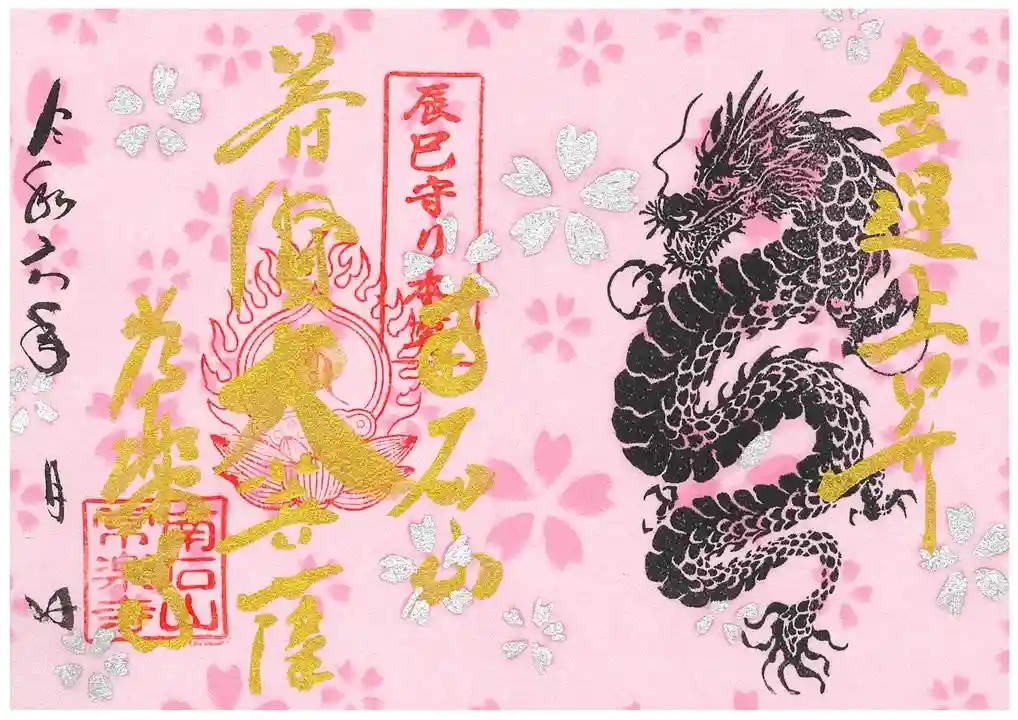 金運上昇
辰巳守り本尊
南石山
普賢大菩薩
常樂寺
南石山
常楽寺
令和六年 月 日